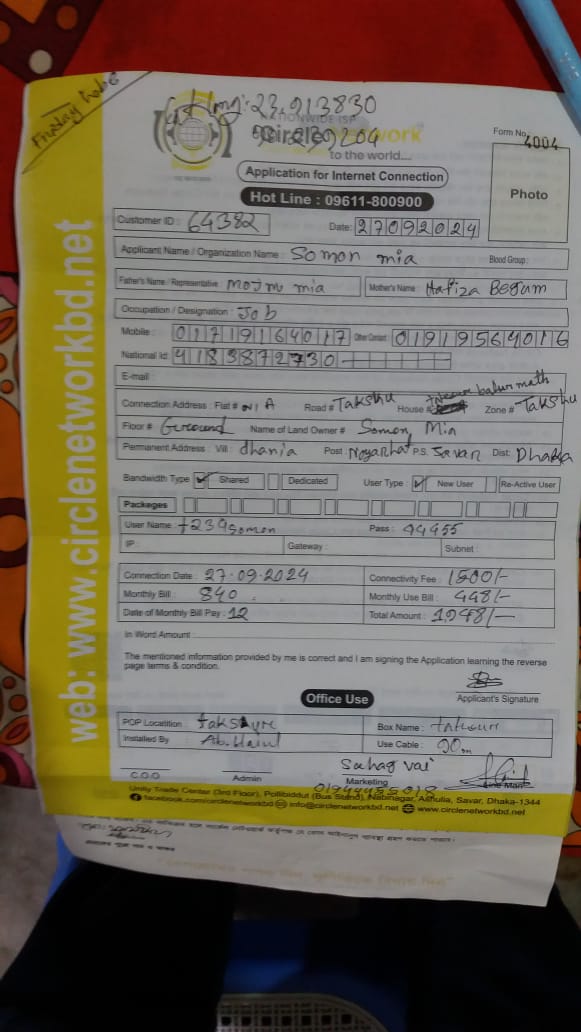 Friday
Lat lng: 23.913830
NATIONWIDE ISP
Circle Network
to the world....
Form No. 4004
Application for Internet Connection
Photo
Hot Line : 09611-800900
Customer ID : 64382
Date: 27092024
Applicant Name / Organization Name : Somon mia
Blood Group :
Father's Name / Representative mia
Mother's Name : Hafiza Begum
Occupation / Designation : Job
Mobile : 01719164017 Other Contact : 01919564016
National Id: 4183872730
E-mail
Connection Address : Flat # A Road # Takshu House # balur math Zone # Takshu
Floor # Ground Name of Land Owner # Somon Mia
Permanent Address : Vill : dhania Post : Noyarhat P.S. Savar Dist: Dhaka
Bandwidth Type ✓ Shared Dedicated User Type : ✓ New User Re-Active User
Packages
User Name : t239somon Pass : 44455
IP : Gateway : Subnet :
Connection Date : 27-09-2024 Connectivity Fee : 1500/-
Monthly Bill : 840 Monthly Use Bill : 448/-
Date of Monthly Bill Pay : 12 Total Amount : 1948/-
In Word Amount
The mentioned information provided by me is correct and I am signing the Application learning the reverse
page terms & condition.
Applicant's Signature
Office Use
POP Locatition : Box Name :
Installed By Use Cable : 90m
Sahag vai
C.O.O Admin Marketing Line Man
Unity Trade Center (3rd Floor), Pollibiddut (Bus Stand), Nabinagar, Ashulia, Savar, Dhaka-1344
facebook.com/circlenetworkbd info@circlenetworkbd.net www.circlenetworkbd.net
web: www.circlenetworkbd.net